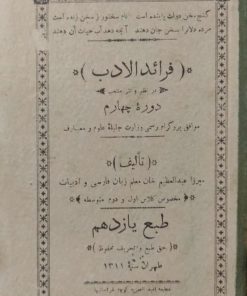 گنج سخن دولت پاینده است نام سخنور ز سخن زنده است
مرده دلانرا سخن جان دهند آنچه دهد آب حیات آن دهند
( فرائدالادب )
در نظم و نثر منتخب
دورهٔ چهارم
موافق پروگرام رسمی وزارت جلیلهٔ علوم و معارف
( تألیف )
میرزا عبدالعظیم خان معلم زبان فارسی و ادبیات
( مخصوص کلاس اول و دوم متوسطه )
طبع یازدهم
( حق طبع و تحریف محفوظ )
طهران سنهٔ ۱۳۱۱